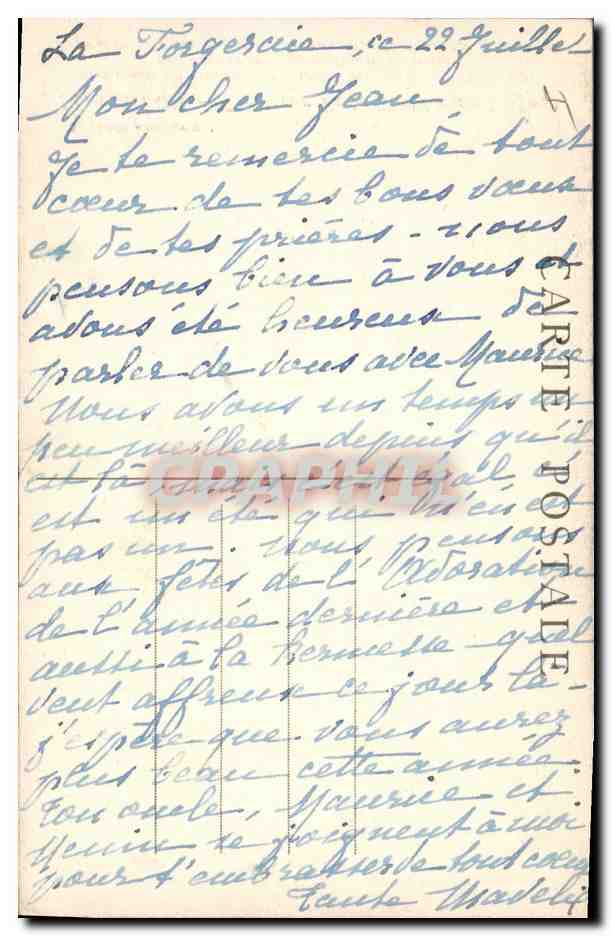 La Forgerie, ce 22 Juillet
Mon cher Jean,
Je te remercie de tout
cœur de tes bons vœux
et de tes prières - nous
pensons bien à vous et
avons été heureux de
parler de vous avec Maurice
Nous avons un temps un
peu meilleur depuis qu'il
est là mais c'est égal, c'
est un été qui n'en est
pas un. nous pensons
aux fêtes de l'Adoration
de l'année dernière et
aussi à la kermesse - quel
vent affreux ce jour là -
j'espère que vous aurez
plus beau cette année.
Ton oncle, Maurice et
se joignent à moi
pour t'embrasser de tout cœur
Tante
CARTE POSTALE
CPAPHIL